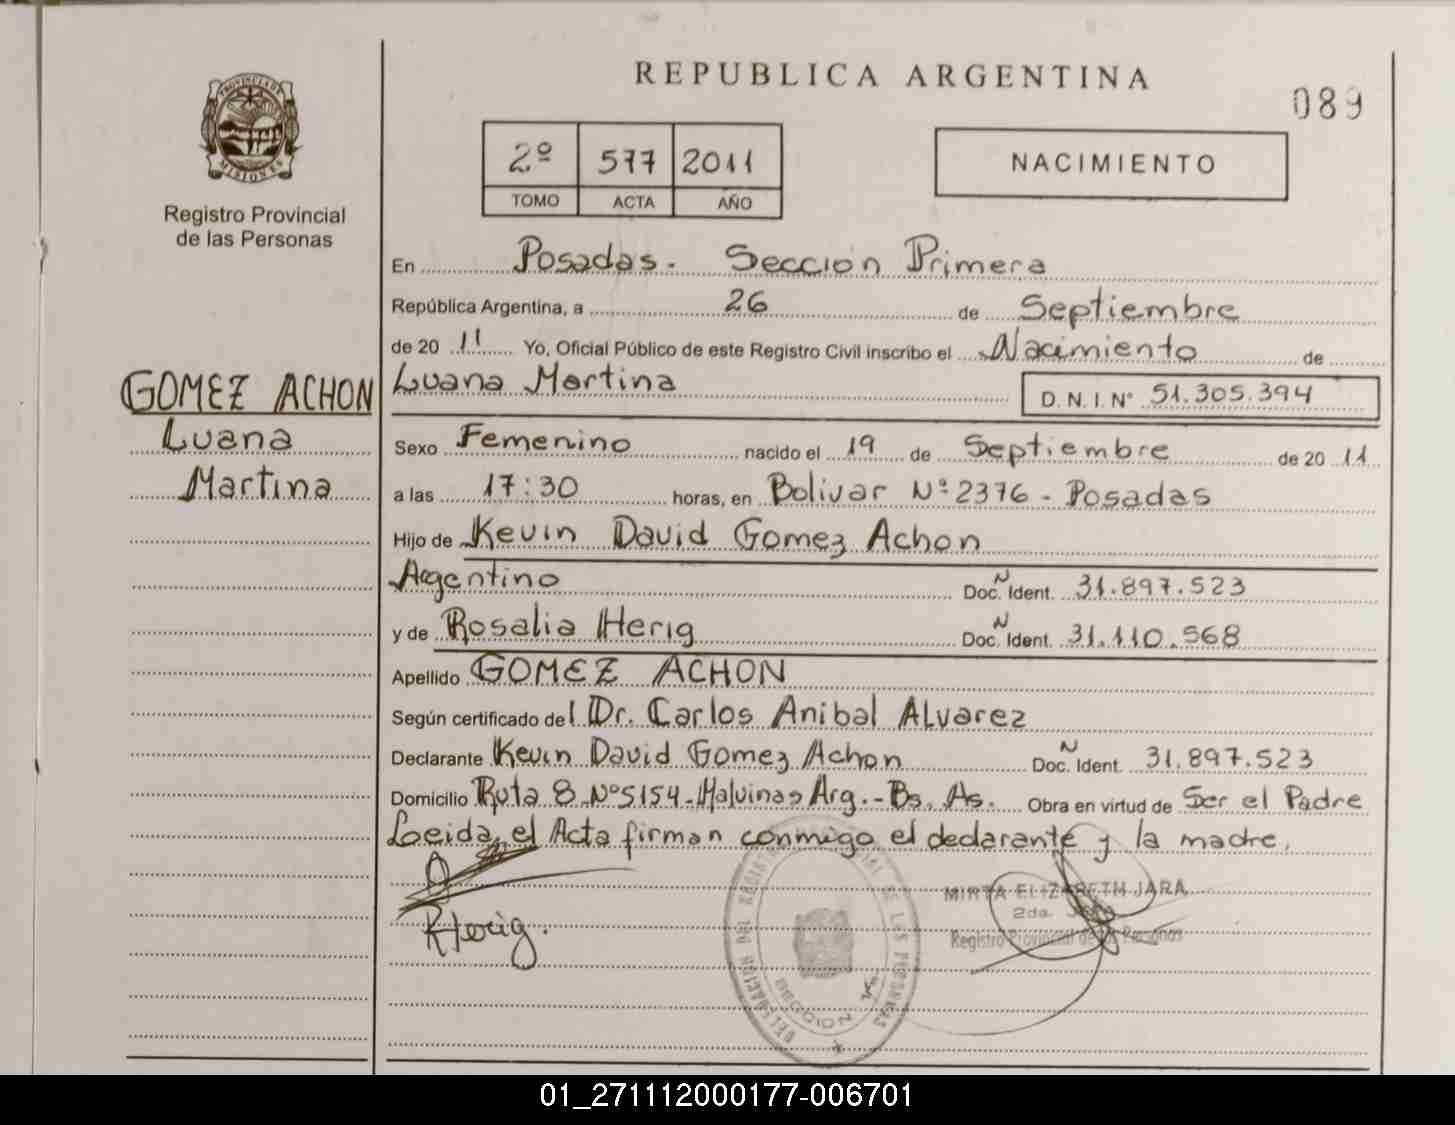 REPUBLICA ARGENTINA
089
PROVINCIA DE MISIONES
Registro Provincial
de las Personas
2º 577 2011
TOMO ACTA AÑO
NACIMIENTO
En Posadas. Seccion Primera
República Argentina, a 26 de Septiembre
de 20 11 Yo, Oficial Público de este Registro Civil inscribo el Nacimiento de
Luana Martina
D. N. I. N° 51.305.394
GOMEZ ACHON
Luana
Martina
Sexo Femenino nacido el 19 de Septiembre de 20 11
a las 17:30 horas, en Bolivar Nº 2376 - Posadas
Hijo de Kevin David Gomez Achon
Argentino Doc. N Ident. 31.897.523
y de Rosalia Herig Doc. N Ident. 31.110.568
Apellido GOMEZ ACHON
Según certificado del Dr. Carlos Anibal Alvarez
Declarante Kevin David Gomez Achon Doc. N Ident. 31.897.523
Domicilio Ruta 8 Nº 5154 - Malvinas Arg. - Bs. As. Obra en virtud de Ser el Padre
Leida el Acta firman conmigo el declarante y la madre.
RHerig.
MIRTA ELIZABETH JARA
2da.
Registro Provincial de las Personas
SECCION
01_271112000177-006701